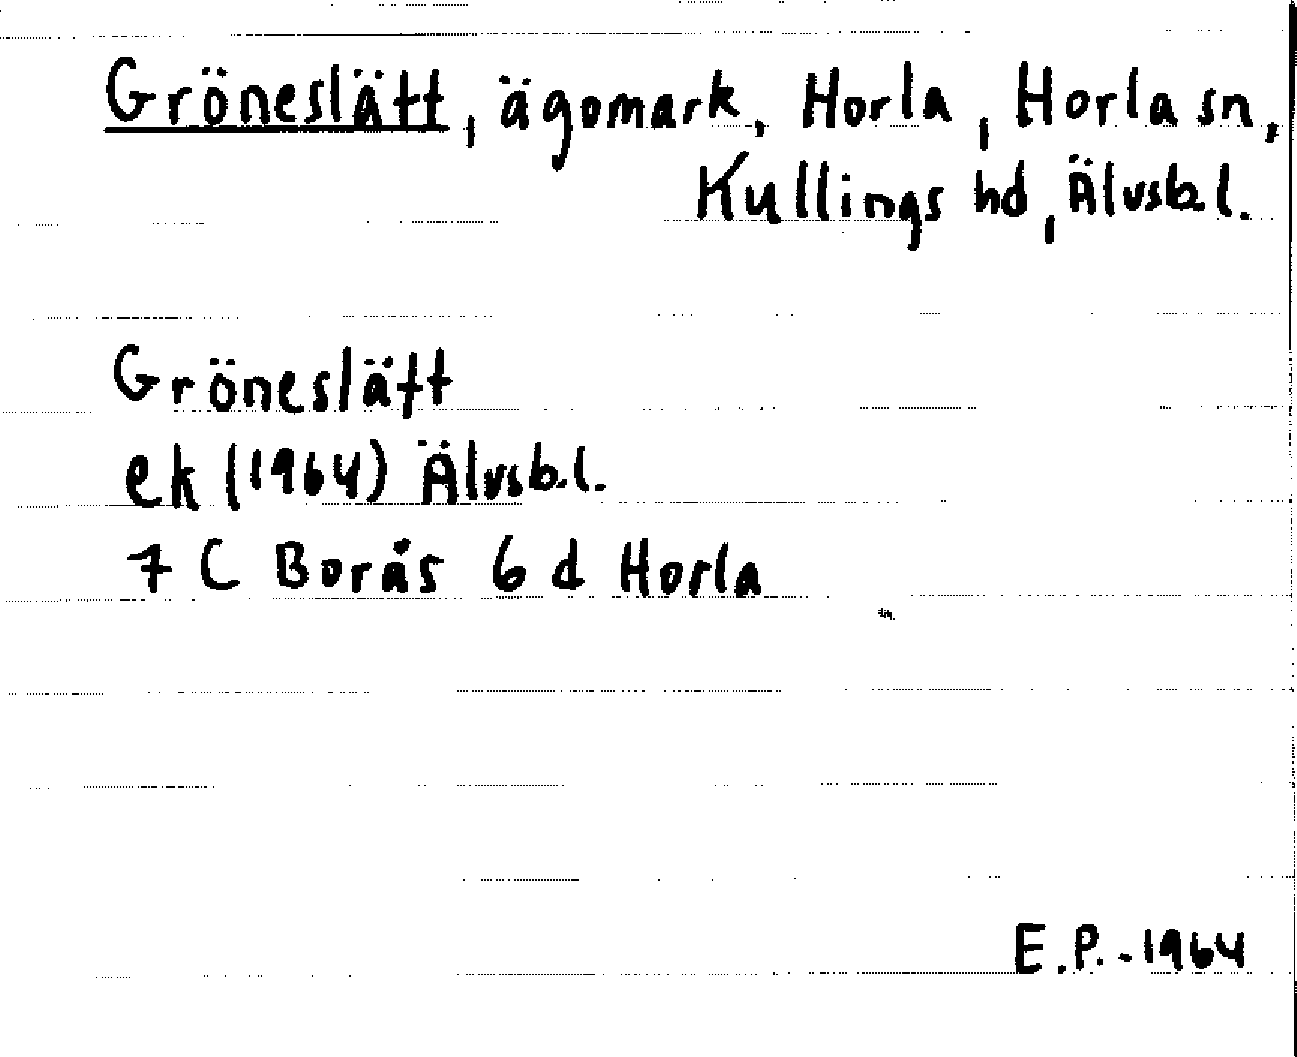 Gröneslätt, ägomark, Horla, Horla sn,
Kullings hd, Älvsb.l.
Gröneslätt
ek (1964) Älvsb.l.
7 C Borås 6 d Horla
E.P.-1964